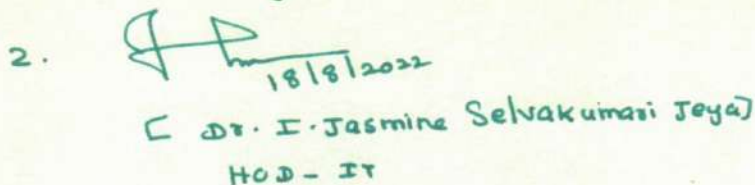 2.
18/8/2022
[ Dr. I. Jasmine Selvakumari Jeya]
HOD - IT